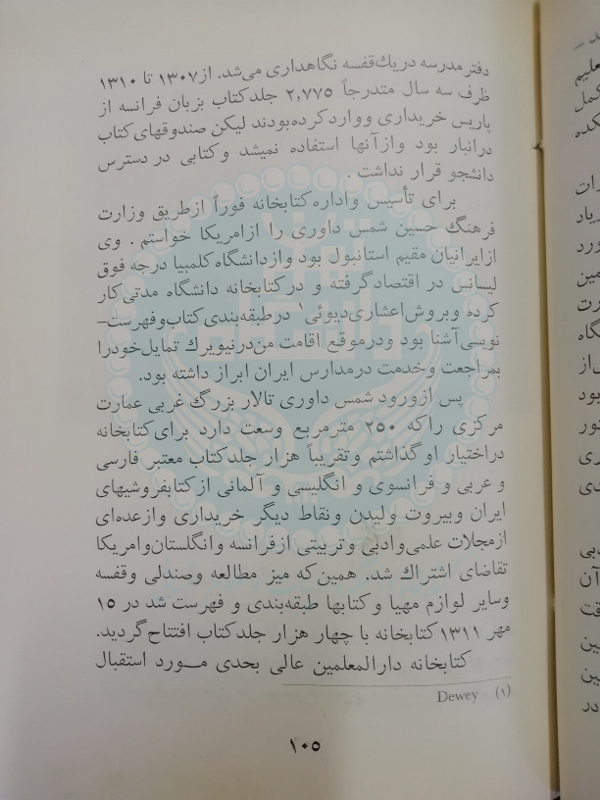 دفتر مدرسه در یك قفسه نگاهداری می‌شد. از ۱۳۰۷ تا ۱۳۱۰
ظرف سه سال متدرجاً ۲,۷۷۵ جلد کتاب بزبان فرانسه از
پاریس خریداری و وارد کرده بودند لیکن صندوقهای کتاب
در انبار بود و از آنها استفاده نمیشد و کتابی در دسترس
دانشجو قرار نداشت .
برای تأسیس و اداره کتابخانه فوراً از طریق وزارت
فرهنگ حسین شمس داوری را از امریکا خواستم . وی
از ایرانیان مقیم استانبول بود و از دانشگاه کلمبیا درجه فوق
لیسانس در اقتصاد گرفته و در کتابخانه دانشگاه مدتی کار
کرده و بروش اعشاری دیوئی۱ در طبقه‌بندی کتاب و فهرست-
نویسی آشنا بود و در موقع اقامت من در نیویرك تمایل خود را
بمراجعت و خدمت در مدارس ایران ابراز داشته بود.
پس از ورود شمس داوری تالار بزرگ غربی عمارت
مرکزی را که ۲۵۰ مترمربع وسعت دارد برای کتابخانه
در اختیار او گذاشتم و تقریباً هزار جلد کتاب معتبر فارسی
و عربی و فرانسوی و انگلیسی و آلمانی از کتابفروشیهای
ایران و بیروت و لیدن و نقاط دیگر خریداری و از عده‌ای
از مجلات علمی و ادبی و تربیتی از فرانسه و انگلستان و امریکا
تقاضای اشتراك شد. همین که میز مطالعه و صندلی و قفسه
و سایر لوازم مهیا و کتابها طبقه‌بندی و فهرست شد در ۱۵
مهر ۱۳۱۱ کتابخانه با چهار هزار جلد کتاب افتتاح گردید.
کتابخانه دارالمعلمین عالی بحدی مورد استقبال
(۱) Dewey
۱۰۵